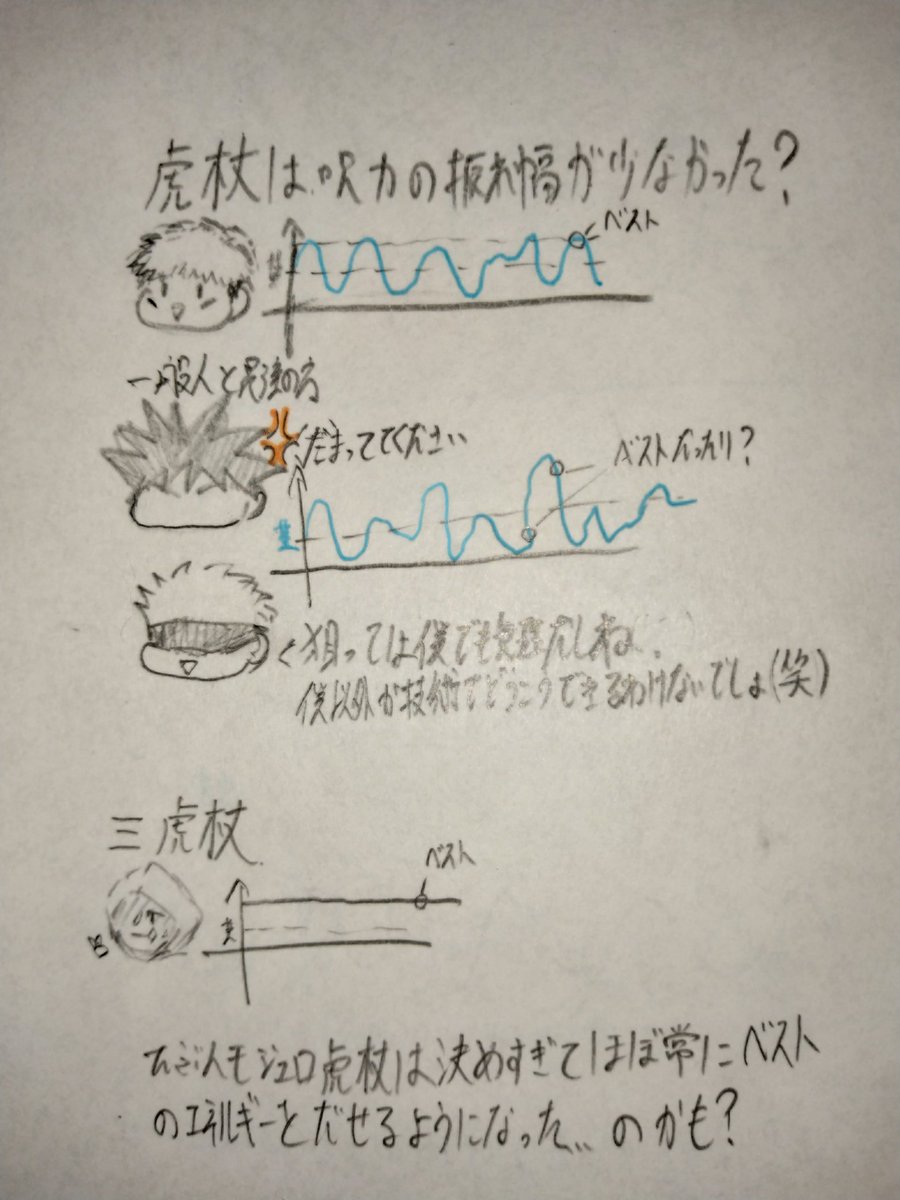 虎杖は呪力の振れ幅が少なかった？
ベスト
一般人と見強の方
だまっててください
ベストだったり？
狙っては僕でも
僕以外が技術でどうこうできるわけないでしょ(笑)
三虎杖
ベスト
モジュロ虎杖は決めすぎてほぼ常にベスト
のエネルギーをだせるようになった… のかも？